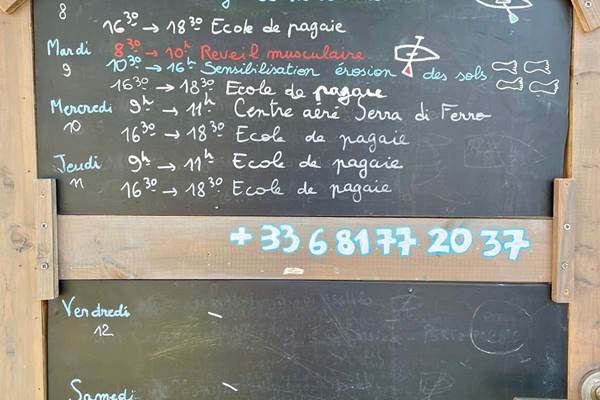 8
16³⁰ → 18³⁰ Ecole de pagaie
Mardi 8³⁰ → 10ʰ Reveil musculaire
9 10³⁰ → 16ʰ Sensibilisation érosion des sols
16³⁰ → 18³⁰ Ecole de pagaie
Mercredi 9ʰ → 11ʰ Centre aéré Serra di Ferro
10 16³⁰ → 18³⁰ Ecole de pagaie
Jeudi 9ʰ → 11ʰ Ecole de pagaie
11 16³⁰ → 18³⁰ Ecole de pagaie
+33 6 81 77 20 37
Vendredi
12
Samedi